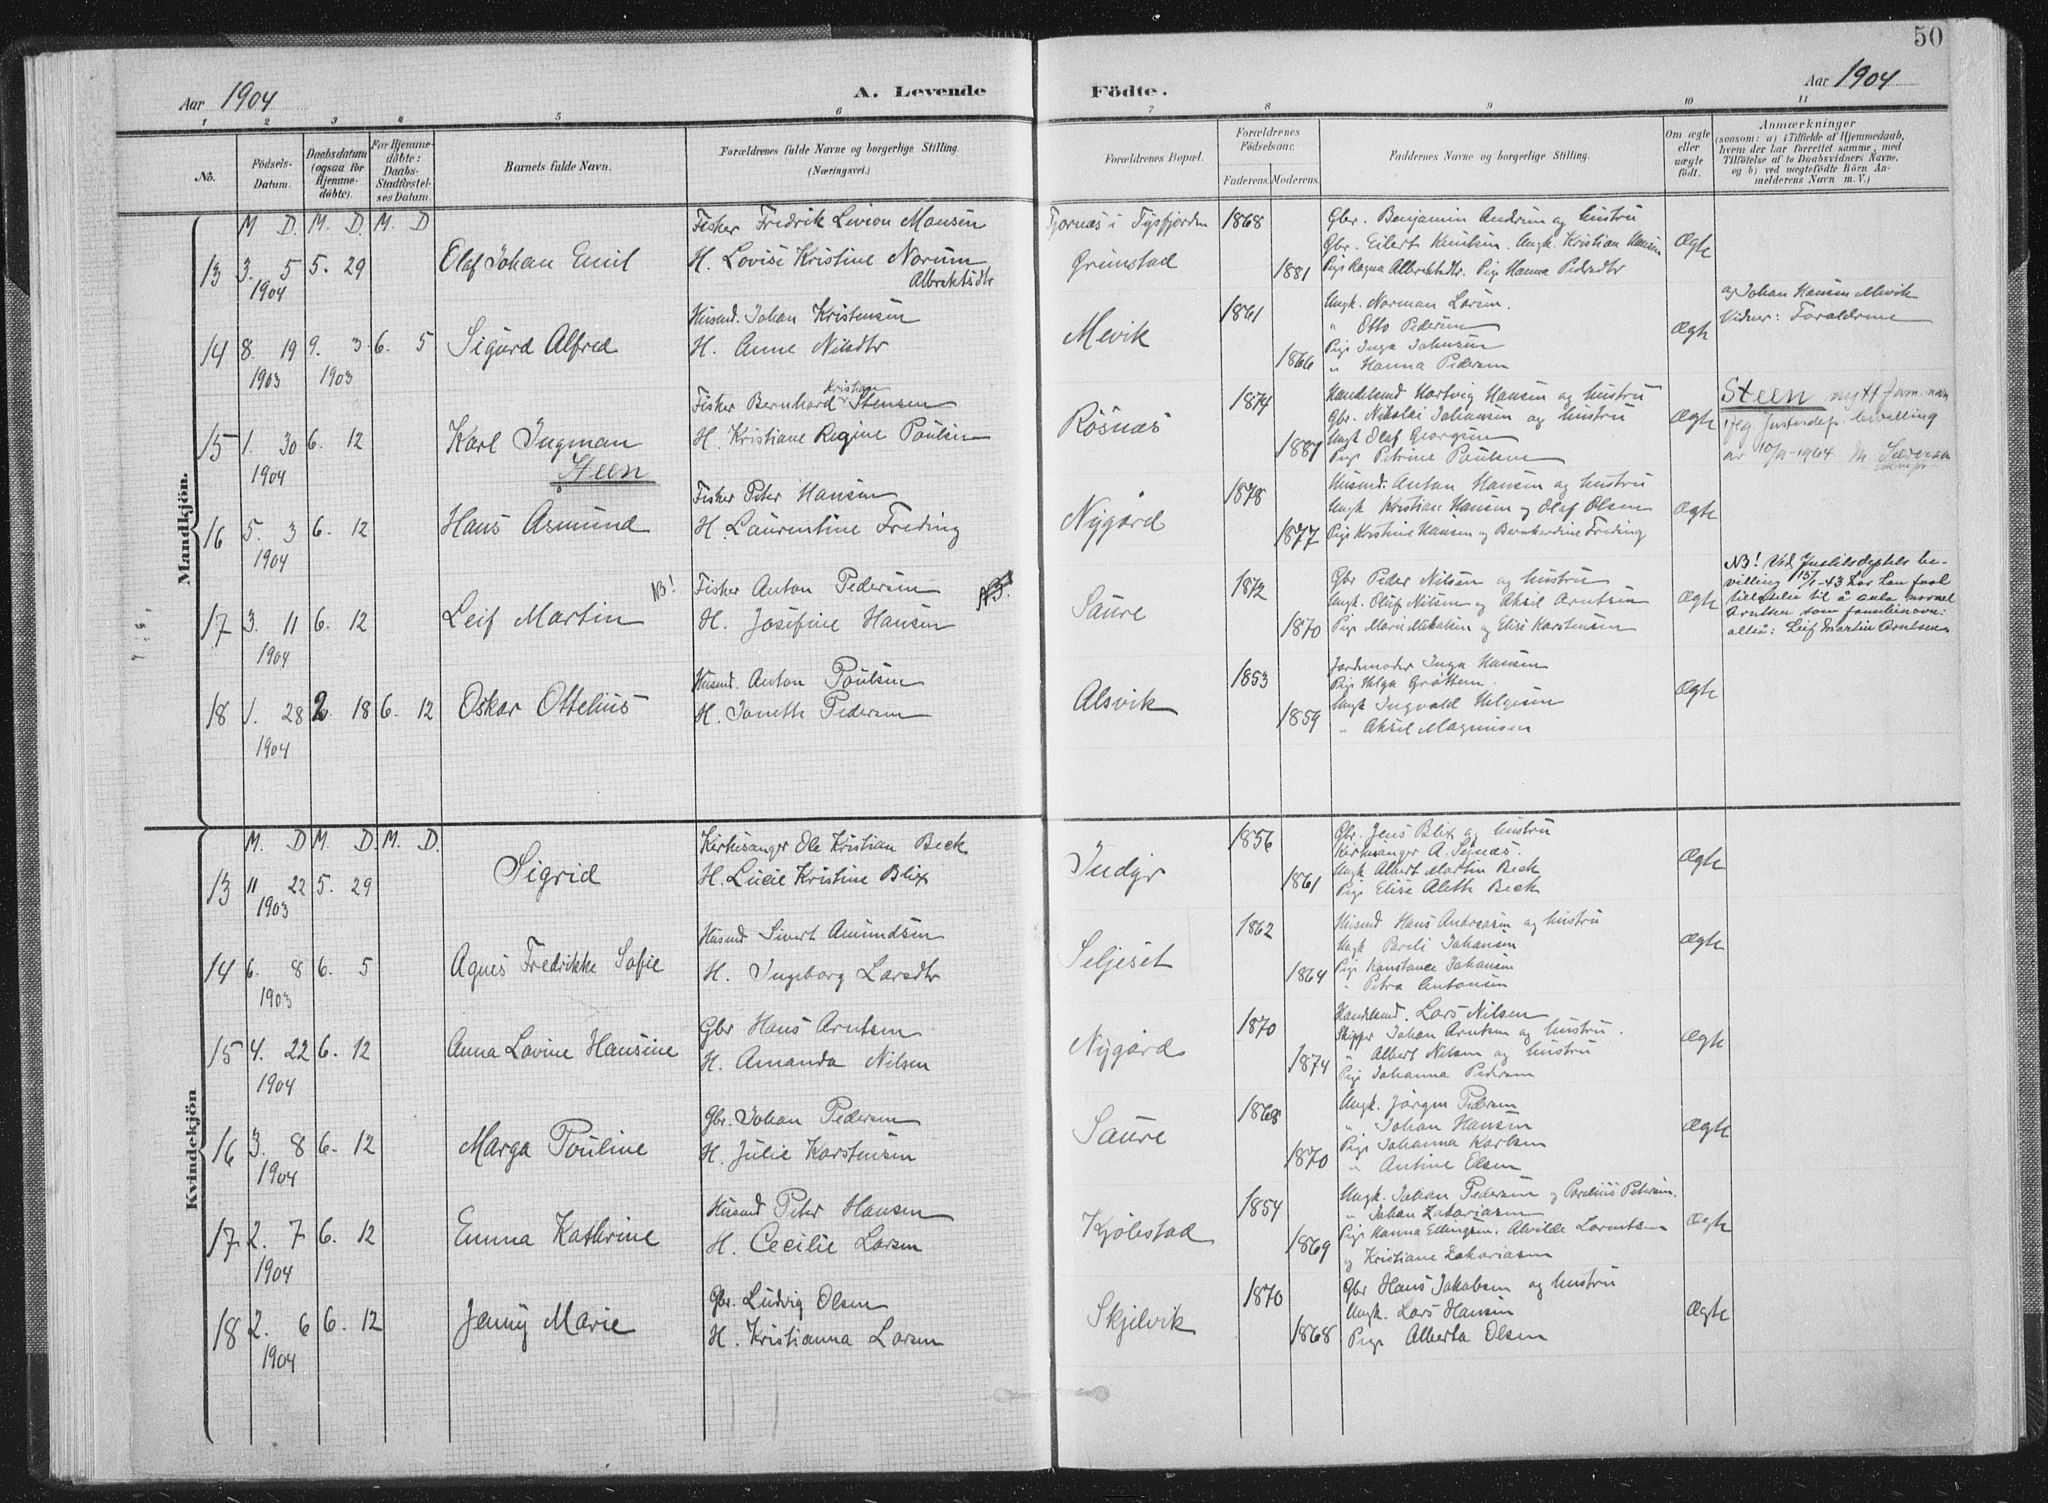 50
Aar 1904 A. Levende Födte. Aar 1904
1 2 3 4 5 6 7 8 9 10 11
No.
Födsels-Datum.
Daabsdatum (ogsaa for Hjemmedöbte).
For Hjemmedöbte: Daabs-Stadfæstelses Datum.
Barnets fulde Navn.
Forældrenes fulde Navne og borgerlige Stilling. (Næringsvei.)
Forældrenes Bopæl.
Forældrenes Födselsaar.
Faderens. Moderens.
Faddernes Navne og borgerlige Stilling.
Om ægte eller uægte födt.
Anmærkninger
(saasom: a) i Tilfælde af Hjemmedaab, hvem der har forrettet samme, med Tilföielse af to Daabsvidners Navne, og b) ved uægtefödte Börn Anmelderens Navn m. V.)
Mandkjön.
M D. M. D. M. D
Fisker Fredrik Livion Mansen Tjornæs i Tysfjorden 1868 Gbr. Benjamin Andersen og hustru
13 3. 5 5. 29 Olaf Johan Emil H. Lovise Kristine Norum Grimstad Gbr. Eilert Knutsen. Ungk. Kristian Hansen Ægte
1904 Albrektsdtr 1881 Pige Ragna Albrektsdtr. Pige Hanna Pedersdtr
Husmd. Johan Kristensen 1861 Ungk. Norman Larsen. af Johan Hansen Mevik
Mevik " Otto Pedersen Ægte Vidner: Forældrene
14 8. 19 9. 3 6. 5 Sigurd Alfred H. Anne Nilsdtr 1866 Pige Inga Johnsen
1903 1903 " Hanna Pedersen
Fisker Bernhard Kristian Stensen 1874 Handelsmd Hartvig Hansen og hustru Steen nytt fam.navn
Røsnæs Gbr. Nikolai Johansen og hustru Ægte
15 1. 30 6. 12 Karl Ingman H. Kristiane Regine Poulsen 1881 Ungk Olaf Georgsen
1904 Steen Pige Petrine Poulsen
Fisker Peter Hansen 1878 Husmd. Anton Hansen og hustru
16 5. 3 6. 12 Hans Asmund H. Laurentine Freding Nygård Ungk Kristian Hansen og Olaf Olsen Ægte
1904 1877 Pige Kristine Hansen og Bernhardine Freding
NB! Fisker Anton Pedersen NB! 1872 Gbr Peder Nilsen og hustru NB! Ved Justisdeptets be-
villing 15/1-43 har han fått
17 3. 11 6. 12 Leif Martin H. Josefine Hansen Saure Ungk. Oluf Nilsen og Aksel Arntsen Ægte tillatelse til å anta navnet
1904 1870 Pige Marie Mikalsen og Elise Karstensen Arntsen som familienavn:
altså: Leif Martin Arntsen.
Husmd. Anton Poulsen 1853 Jordmoder Inga Hansen
Pige Helga Gråtten.
18 1. 28 2. 18 6. 12 Oskar Ottelius H. Janette Pedersen Alsvik 1859 Ungk Ingvald Helgesen Ægte
1904 " Aksel Magnusen
Kvindekjön
M. D M. D. M. D.
Kirkesanger Ole Kristian Beck 1856 Gbr. Jens Blix og hustru
Sigrid Indyr Kirkesanger A. Sejnæs. Ægte
13 11 22 5. 29 H. Lucie Kristine Blix 1861 Ungk Albert Martin Beck
1903 Pige Elise Aleth Beck
Husmd Sivert Amundsen 1862 Husmd Hans Andreasen og hustru
14 6. 8 6. 5 Agnes Fredrikke Sofie H. Ingeborg Larsdtr Seljeset Ungk Pareli Johansen Ægte
1903 1864 Pige Konstance Johansen
" Petra Antonsen
Gbr Hans Arntsen 1870 Handelsmd. Lars Nilsen
15 4. 22 6. 12 Anna Lovine Hansine H. Amanda Nilsen Nygård Skipper Johan Arntsen og hustru. Ægte
1904 1874 " Albert Nilsen og hustru
Pige Johanna Pedersen
Gbr. Johan Pedersen 1868 Ungk. Jørgen Pedersen
16 3. 8 6. 12 Marga Pouline H. Julie Karstensen Saure " Johan Hansen Ægte
1904 1870 Pige Johanna Karlsen
" Antine Elsen
Husmd Peter Hansen 1854 Ungk. Johan Pedersen og Parelius Petersen.
17 2. 7 6. 12 Emma Kathrine H. Cecilie Larsen Kjølestad " Johan Zakariasen Ægte
1904 1869 Pige Hanna Ellingsen. Alvilde Lorentsen
og Kristiane Zakariasen
Gbr. Ludvig Olsen 1870 Gbr Hans Jakobsen og hustru
18 2. 6 6. 12 Jenny Marie H. Kristianna Larsen Skjelvik Ungk. Lars Hansen Ægte
1904 1868 Pige Alberta Olsen